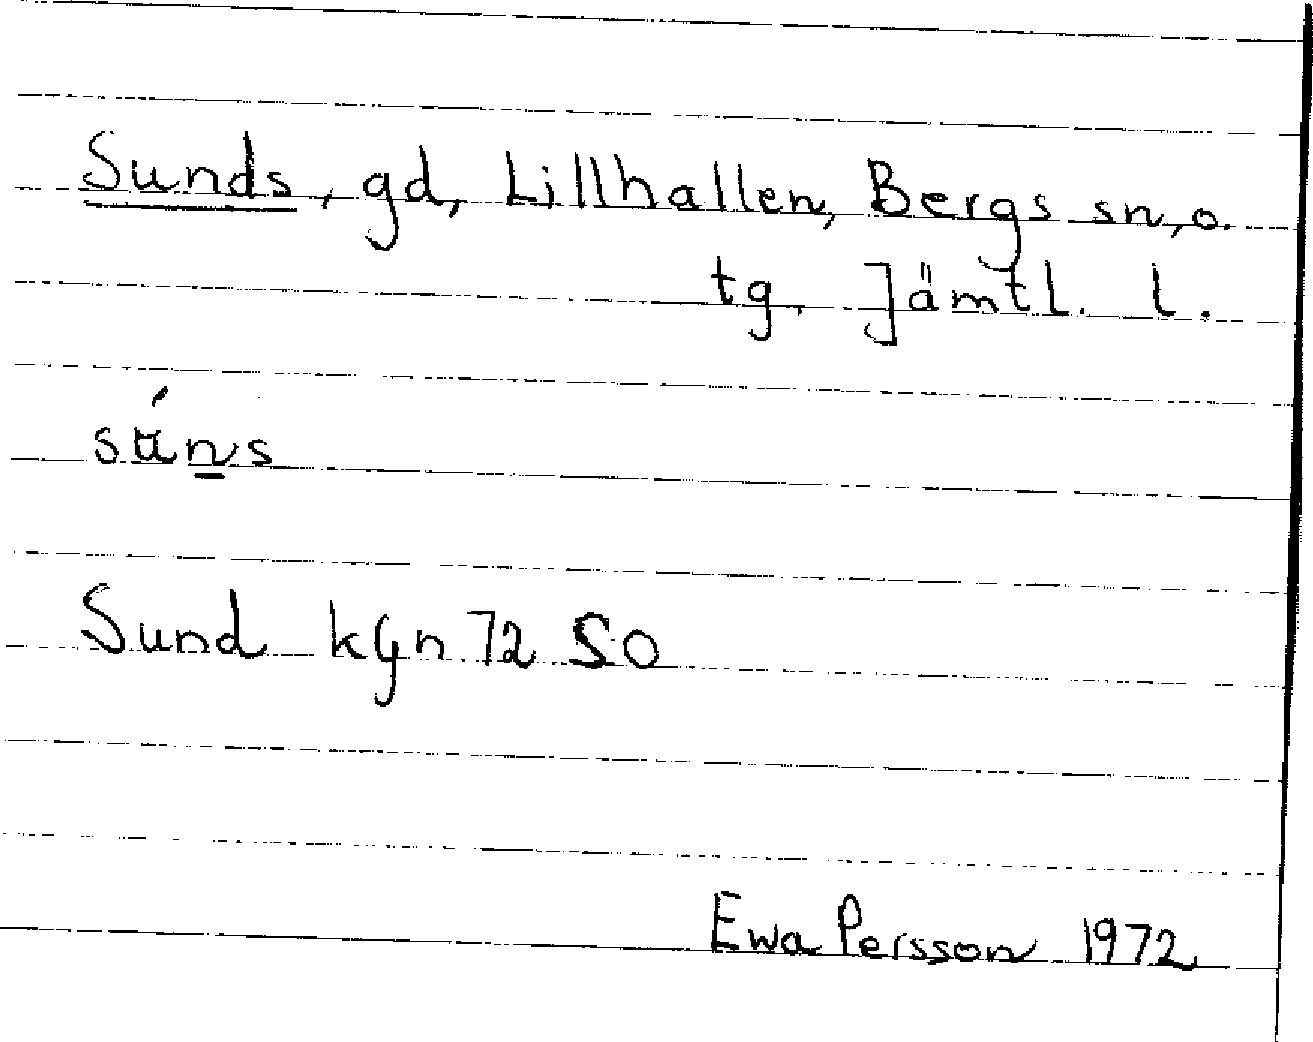 Sunds, gd, Lillhallen, Bergs sn, o.
tg. Jämtl. l.
sʉ́n̲s
Sund kGn 72 SO
Ewa Persson 1972